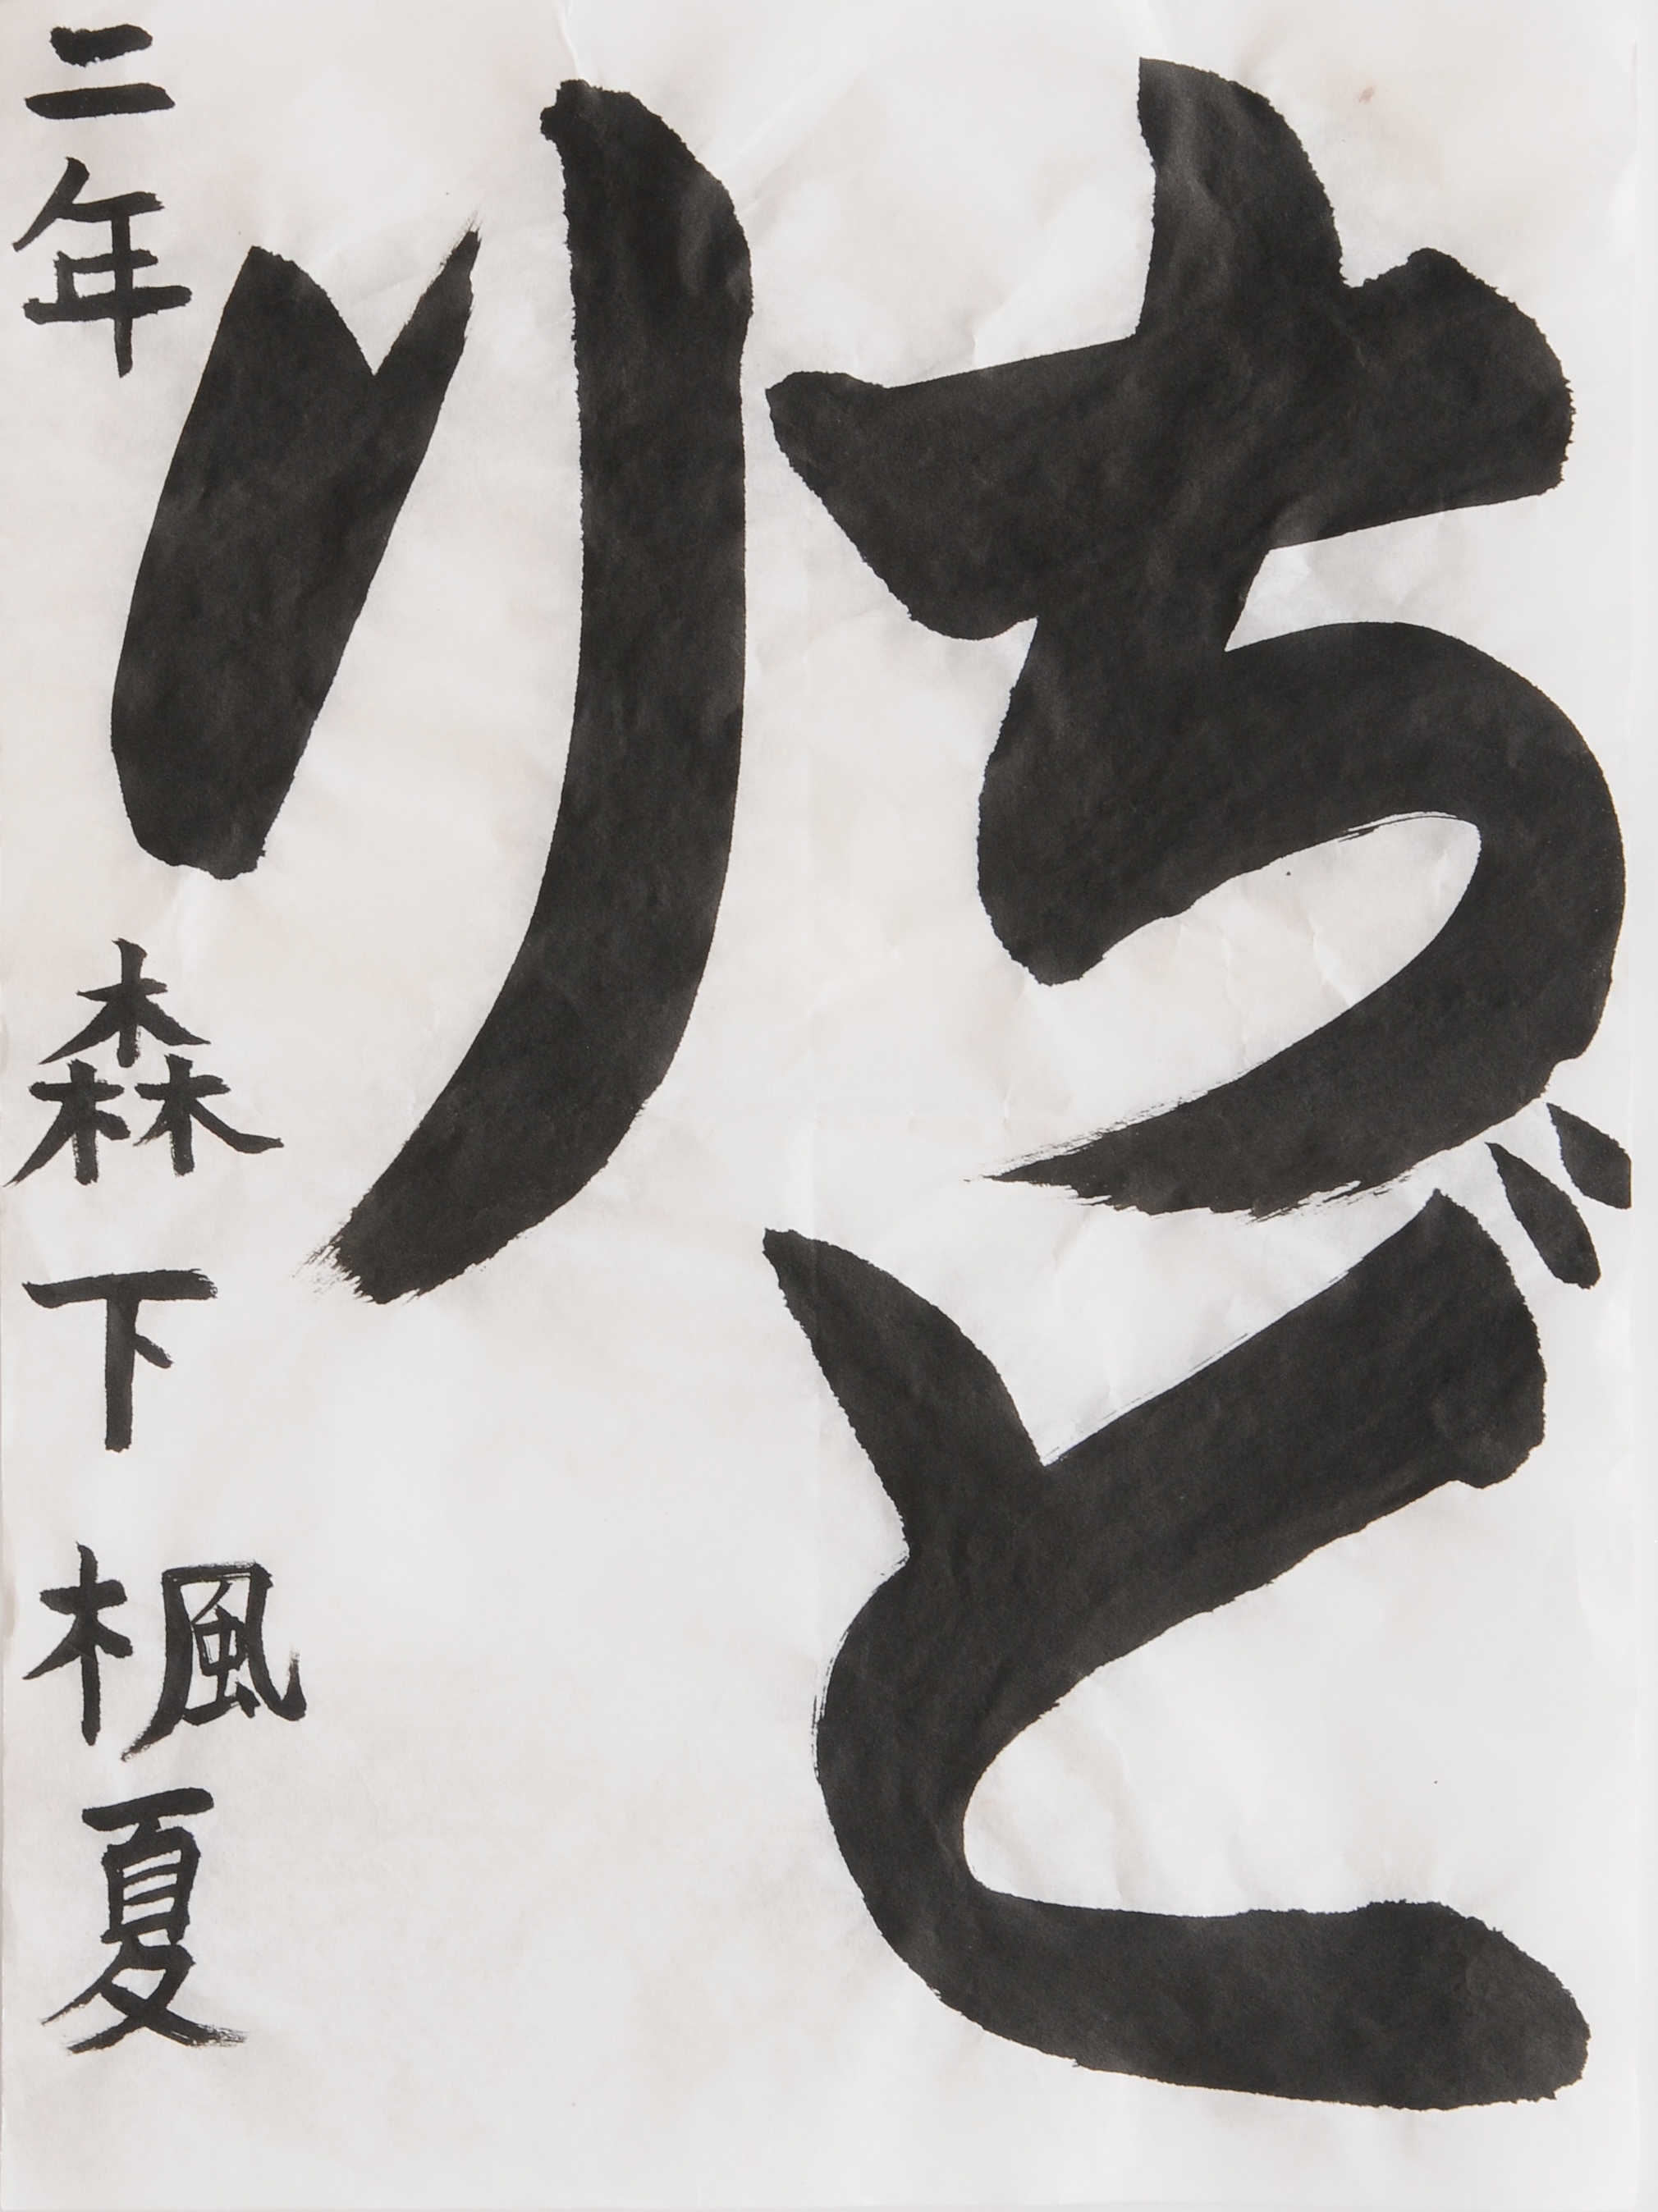 ちど
り
二年 森下 楓夏